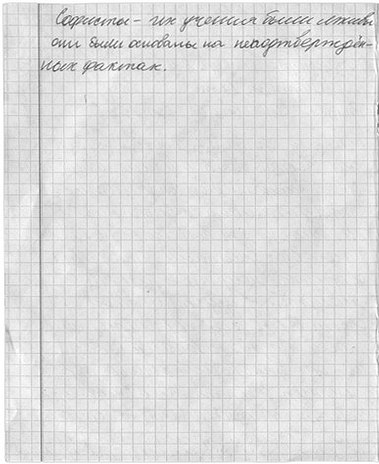 Софисты - их учения были лживы
они были основаны на неподтверждён-
ных фактах.